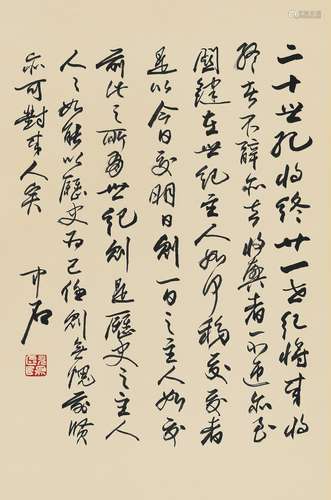 二十世纪将终廿一世纪将来将
终者不辞亦去将兴者一不迎亦至
关键在世纪主人如何移交交者
是以今日交明日创一百之主人如
前此之所为世纪创是历史之主人
人人如能以历史为己任创无愧前贤
亦可对来人矣
中石